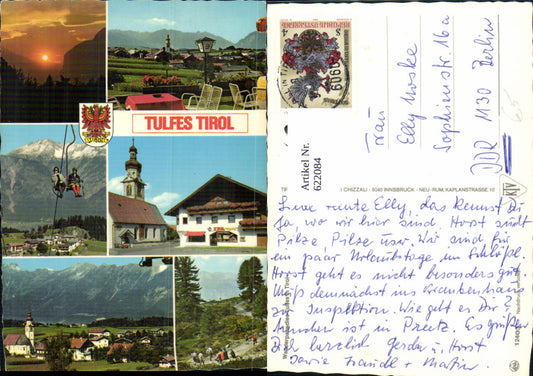 TULFES TIROL
Artikel Nr.
622084
6060
Frau
Elly Moske
Sophienstr. 16a
DDR 1130 Berlin
CHIZZALI · 6040 INNSBRUCK - NEU-RUM, KAPLANSTRASSE 10
Liebe gute Elly, das kennst Du
Ja, wo wir hier sind. Horst sucht
Pilze, Pilze usw. Wir sind für
ein paar Urlaubstage im
Horst geht es nicht besonders gut.
Muß demnächst ins Krankenhaus
zu Inspektion. Wie geht es Dir?
ist in Preetz. Es grüßen
Dich herzlich Gerda u. Horst
sowie Traudl + Martin